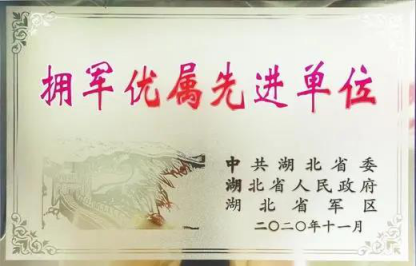 拥军优属先进单位
中共湖北省委
湖北省人民政府
湖北省军区
二〇二〇年十一月